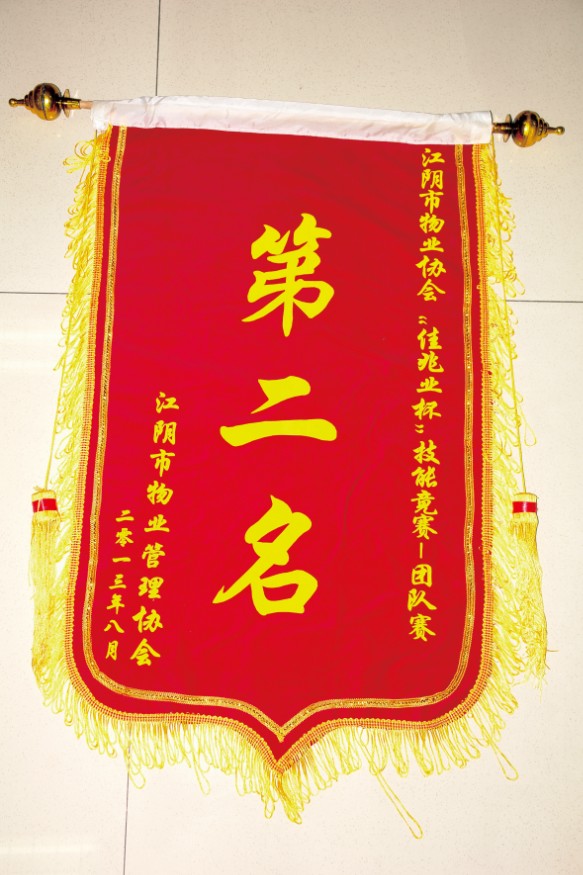 江阴市物业协会“佳兆业杯”技能竞赛-团队赛
第二名
江阴市物业管理协会
二零一三年八月